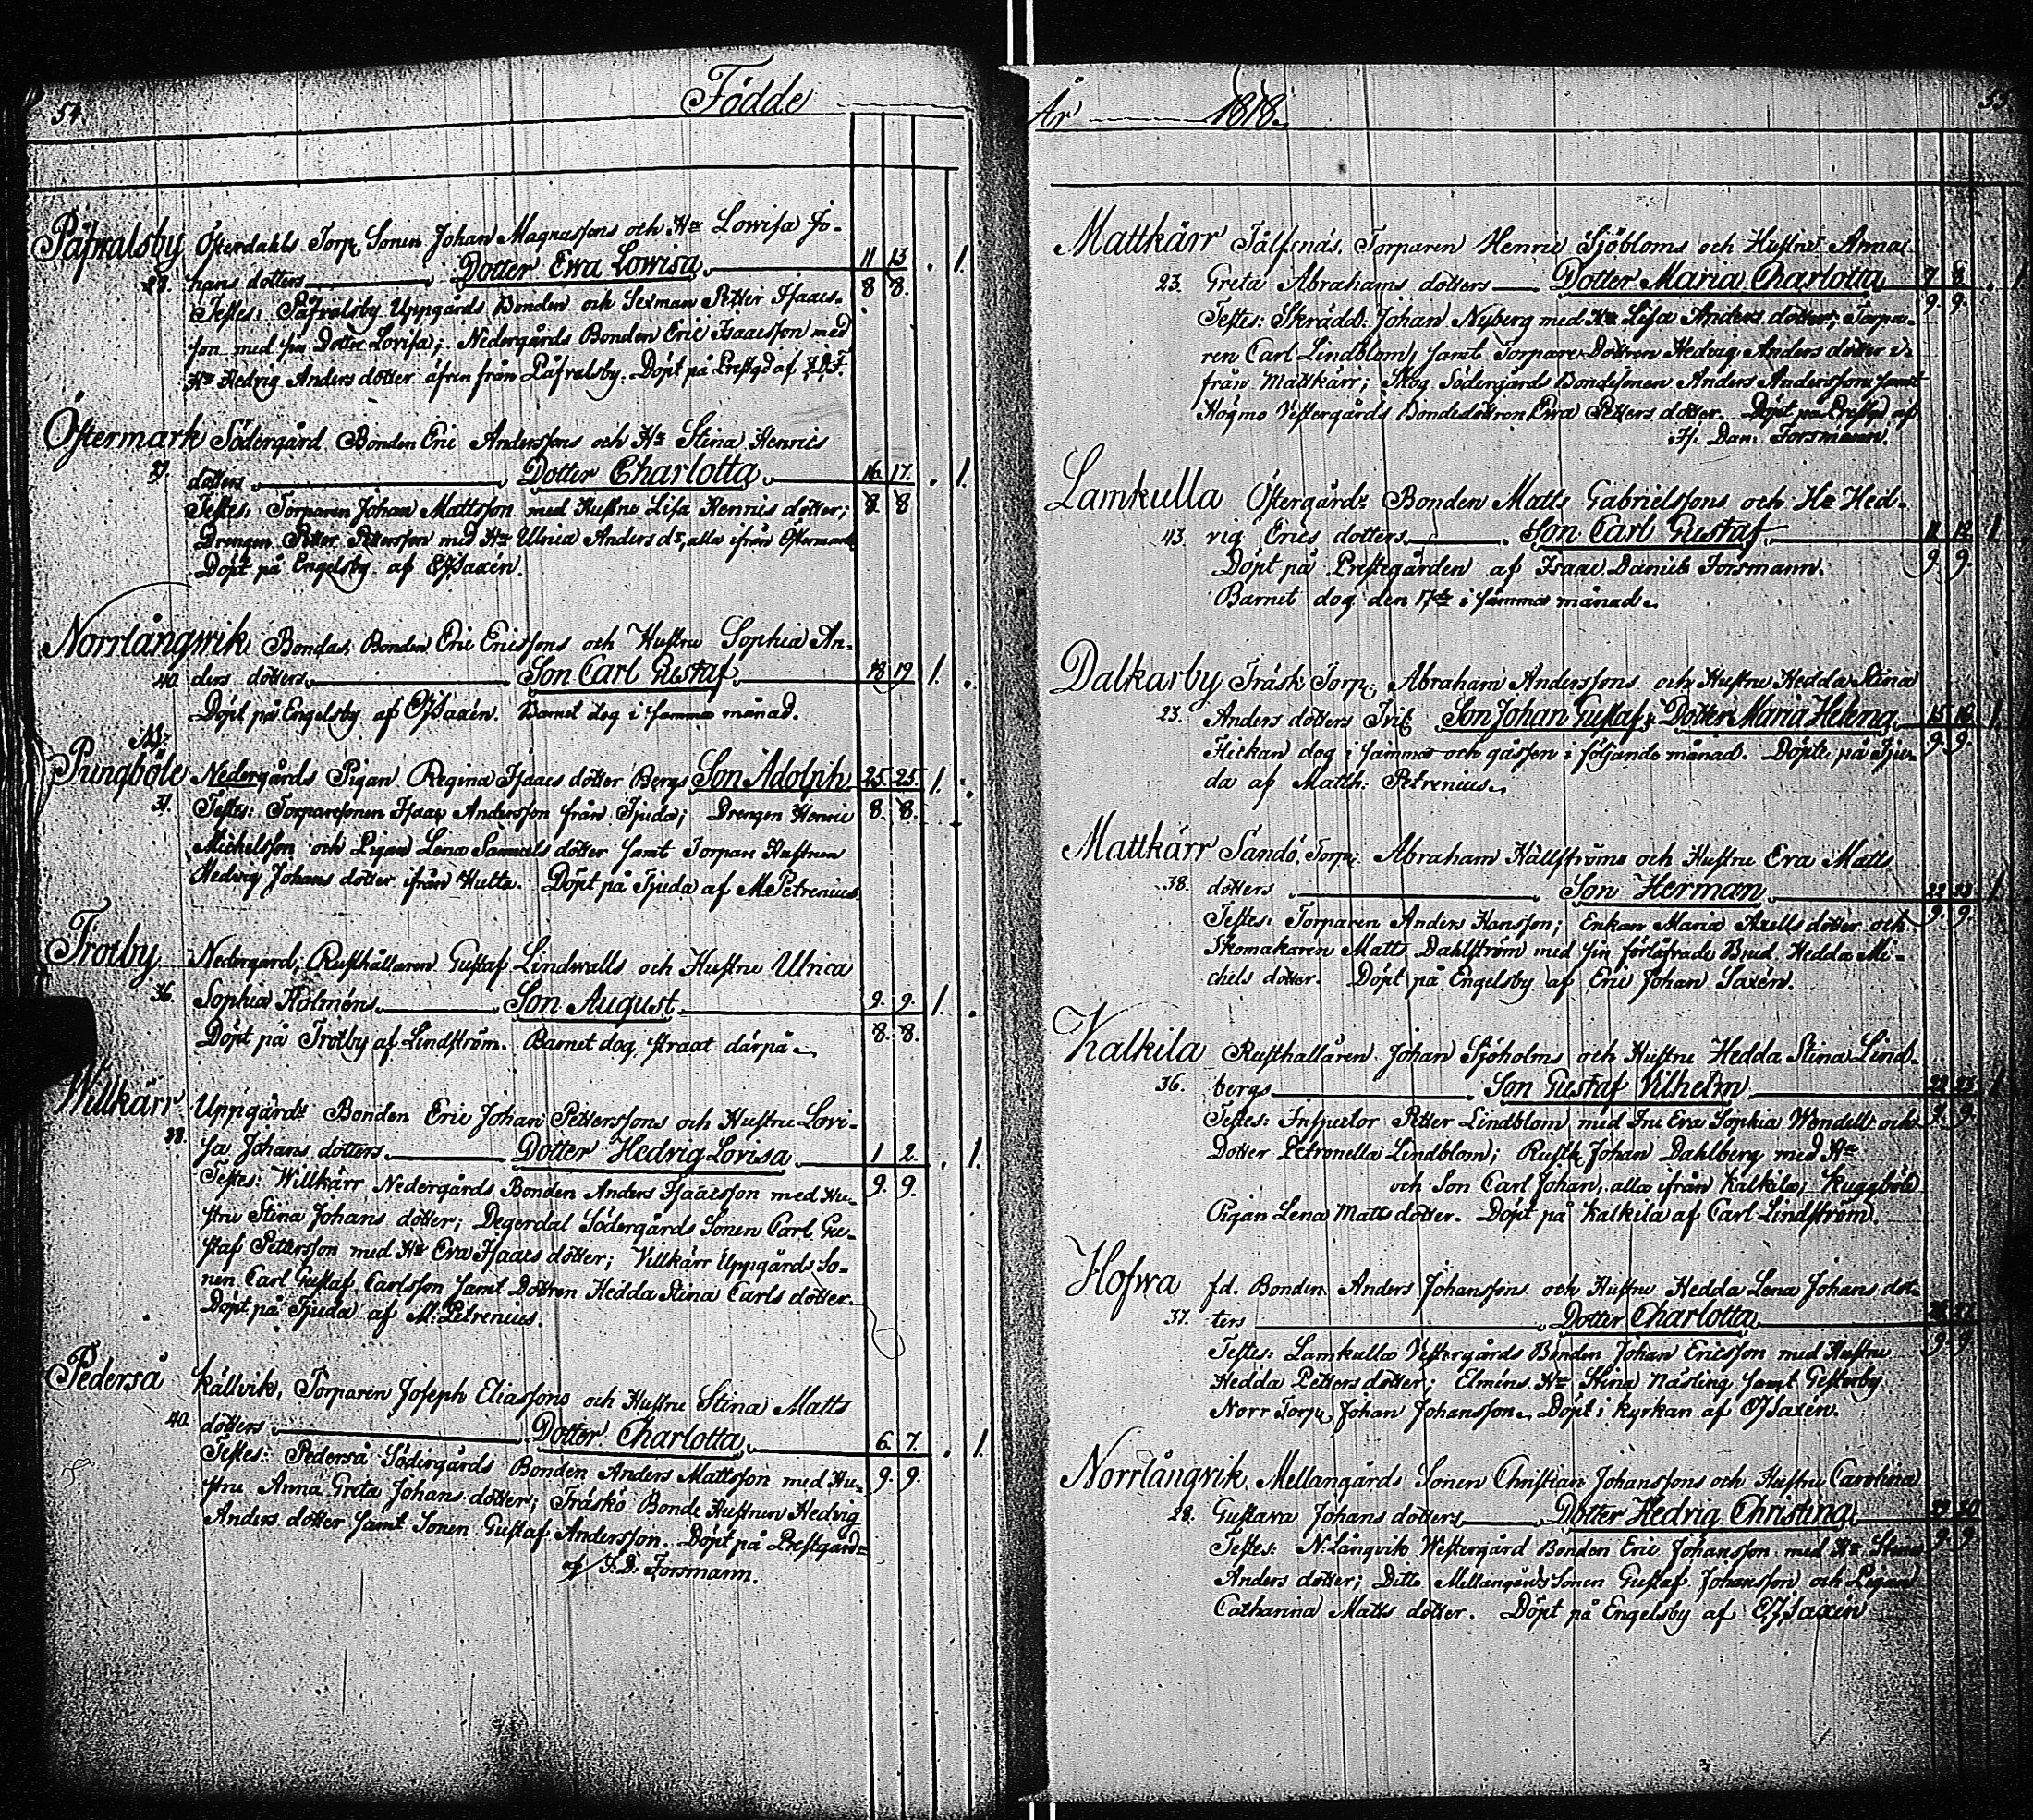 54.
Födde
Påfvalsby Österdahls Torp. Sonen Johan Magnussons och Hu Lovisa Jo-
28. hans dotters Dotter Ewa Lowisa 11 13 . 1.
Testes: Påfvalsby Uppgårds Bonden och Sexman Petter Isaacs- 8 8.
son med sin Dotter Lovisa; Nedergårds Bonden Eric Isaacsson med
Hu Hedvig Anders dotter äfven från Påfvalsby. Döpt på Prestgd af I.D.F.
Östermark Södergård Bonden Eric Anderssons och Hu Stina Henrics
dotters Dotter Charlotta 16. 17. . 1.
Testes: Torparen Johan Mattsson med Hustru Lisa Henrics dotter; 8 8
Drengen Petter Pettersson med Hu Ulrica Anders dr, alla ifrån Östermark
Döpt på Engelsby af EJSaxén.
Norrlångwik Bondas Bonden Eric Ericssons och Hustru Sophia An-
40. ders dotters Son Carl Gustaf 18 19 1. .
Döpt på Engelsby af EJSaxén. Barnet dog i samma månad.
Pungböle Nedergårds Pigan Regina Isaacs dotter Bergs Son Adolph 25 25 1. .
31. Testes: Torparesonen Isaac Andersson från Tjuda; Drengen Henric 8. 8.
Michelsson och Pigan Lena Samuels dotter samt Torpare Hustrun
Hedvig Johans dotter ifrån Hulta. Döpt på Tjuda af M. Petrenius.
Trotby Nedergård, Rusthållaren Gustaf Lindwalls och Hustru Ulrica
36. Sophia Holméns Son August 9. 9. 1. .
Döpt på Trotby af Lindström. Barnet dog straxt därpå 8. 8.
Willkärr Uppgårds Bonden Eric Johan Petterssons och Hustru Lovi-
28. sa Johans dotters Dotter Hedvig Lovisa 1 2. . 1.
Testes: Willkärr Nedergårds Bonden Anders Isaacsson med Hu- 9. 9.
stru Stina Johans dotter; Degerdal Södergårds Sonen Carl Gu-
staf Pettersson med Hu Eva Isaacs dotter; Villkärr Uppgårds So-
nen Carl Gustaf Carlsson samt Dottren Hedda Stina Carls dotter.
Döpt på Tjuda af M: Petrenius.
Pederså Källvik, Torparen Joseph Eliassons och Hustru Stina Matts
40. dotters Dotter Charlotta 6. 7. . 1.
Testes: Pederså Södergårds Bonden Anders Mattsson med Hu- 9. 9.
stru Anna Greta Johans dotter; Träskö Bonde Hustrun Hedvig
Anders dotter samt Sonen Gustaf Andersson. Döpt på Prestgård
af I. D. Forsmann.
År 1818. 55
Mattkärr Torparen Henric Sjöbloms och Hustru Anna
23. Greta Abrahams dotters Dotter Maria Charlotta 7 8 . 1
Testes: Skrädd: Johan Nyberg med Hu Lisa Anders dotter; Torpa- 9. 9.
ren Carl Lindblom, samt Torpare Dottren Hedvig Anders dotter i-
från Mattkärr; Skog Södergårds Bondesonen Anders Andersson samt
Högmo Vestergårds Bondedottren Ewa Petters dotter. Döpt på Prestgd af
Is. Dan: Forsmann.
Lamkulla Östergårds Bonden Matts Gabrielssons och Hu Hed-
43. vig Erics dotters Son Carl Gustaf 11 12 1
Döpt på Prestegården af Isaac Daniel Forsmann. 9. 9.
Barnet dog den 17de i samma månad.
Dalkarby Träsk Torp: Abraham Anderssons och Hustru Hedda Stina
23. Anders dotters Tvil: Son Johan Gustaf & Dotter Maria Helena 15 16 1
Flickan dog i samma och gåssen i följande månad. Döpte på Tju- 9. 9.
da af Matth: Petrenius.
Mattkärr Sandö, Torp: Abraham Källströms och Hustru Eva Matts
38. dotters Son Herman 22 23 1
Testes: Torparen Anders Hansson; Enkan Maria Axells dotter och 9. 9.
Skomakaren Matts Dahlström med sin förlofvade Brud Hedda Mi-
chels dotter. Döpt på Engelsby af Eric Johan Saxén.
Kalkila Rusthållaren Johan Sjöholms och Hustru Hedda Stina Lind-
36. bergs Son Gustaf Vilhelm 22 23 1
Testes: Inspector Petter Lindblom med Fru Eva Sophia Wendell och 9. 9.
Dotter Petronella Lindblom; Rusth. Johan Dahlberg med Hu
och Son Carl Johan, alla ifrån Kalkila; Kuggböle
Pigan Lena Matts dotter. Döpt på Kalkila af Carl Lindström.
Hofwa f.d. Bonden Anders Johanssons och Hustru Hedda Lena Johans dot-
37. ters Dotter Charlotta
Testes: Lamkulla Vestergårds Bonden Johan Ericsson med Hustru 9. 9
Hedda Petters dotter; Elméns Hu Stina Näsling samt Gesterby
Norr Torp: Johan Johansson. Döpt i kyrkan af EJSaxén.
Norrlångvik, Mellangårds Sonen Christian Johanssons och Hustru Carolina
28. Gustava Johans dotters Dotter Hedvig Christina 29 30
Testes: N:Långvik Westergård Bonden Eric Johansson med Hu Stina 9 9
Anders dotter; Ditto Mellangårds Sonen Gustaf Johansson och Pigan
Catharina Matts dotter. Döpt på Engelsby af EJSaxén